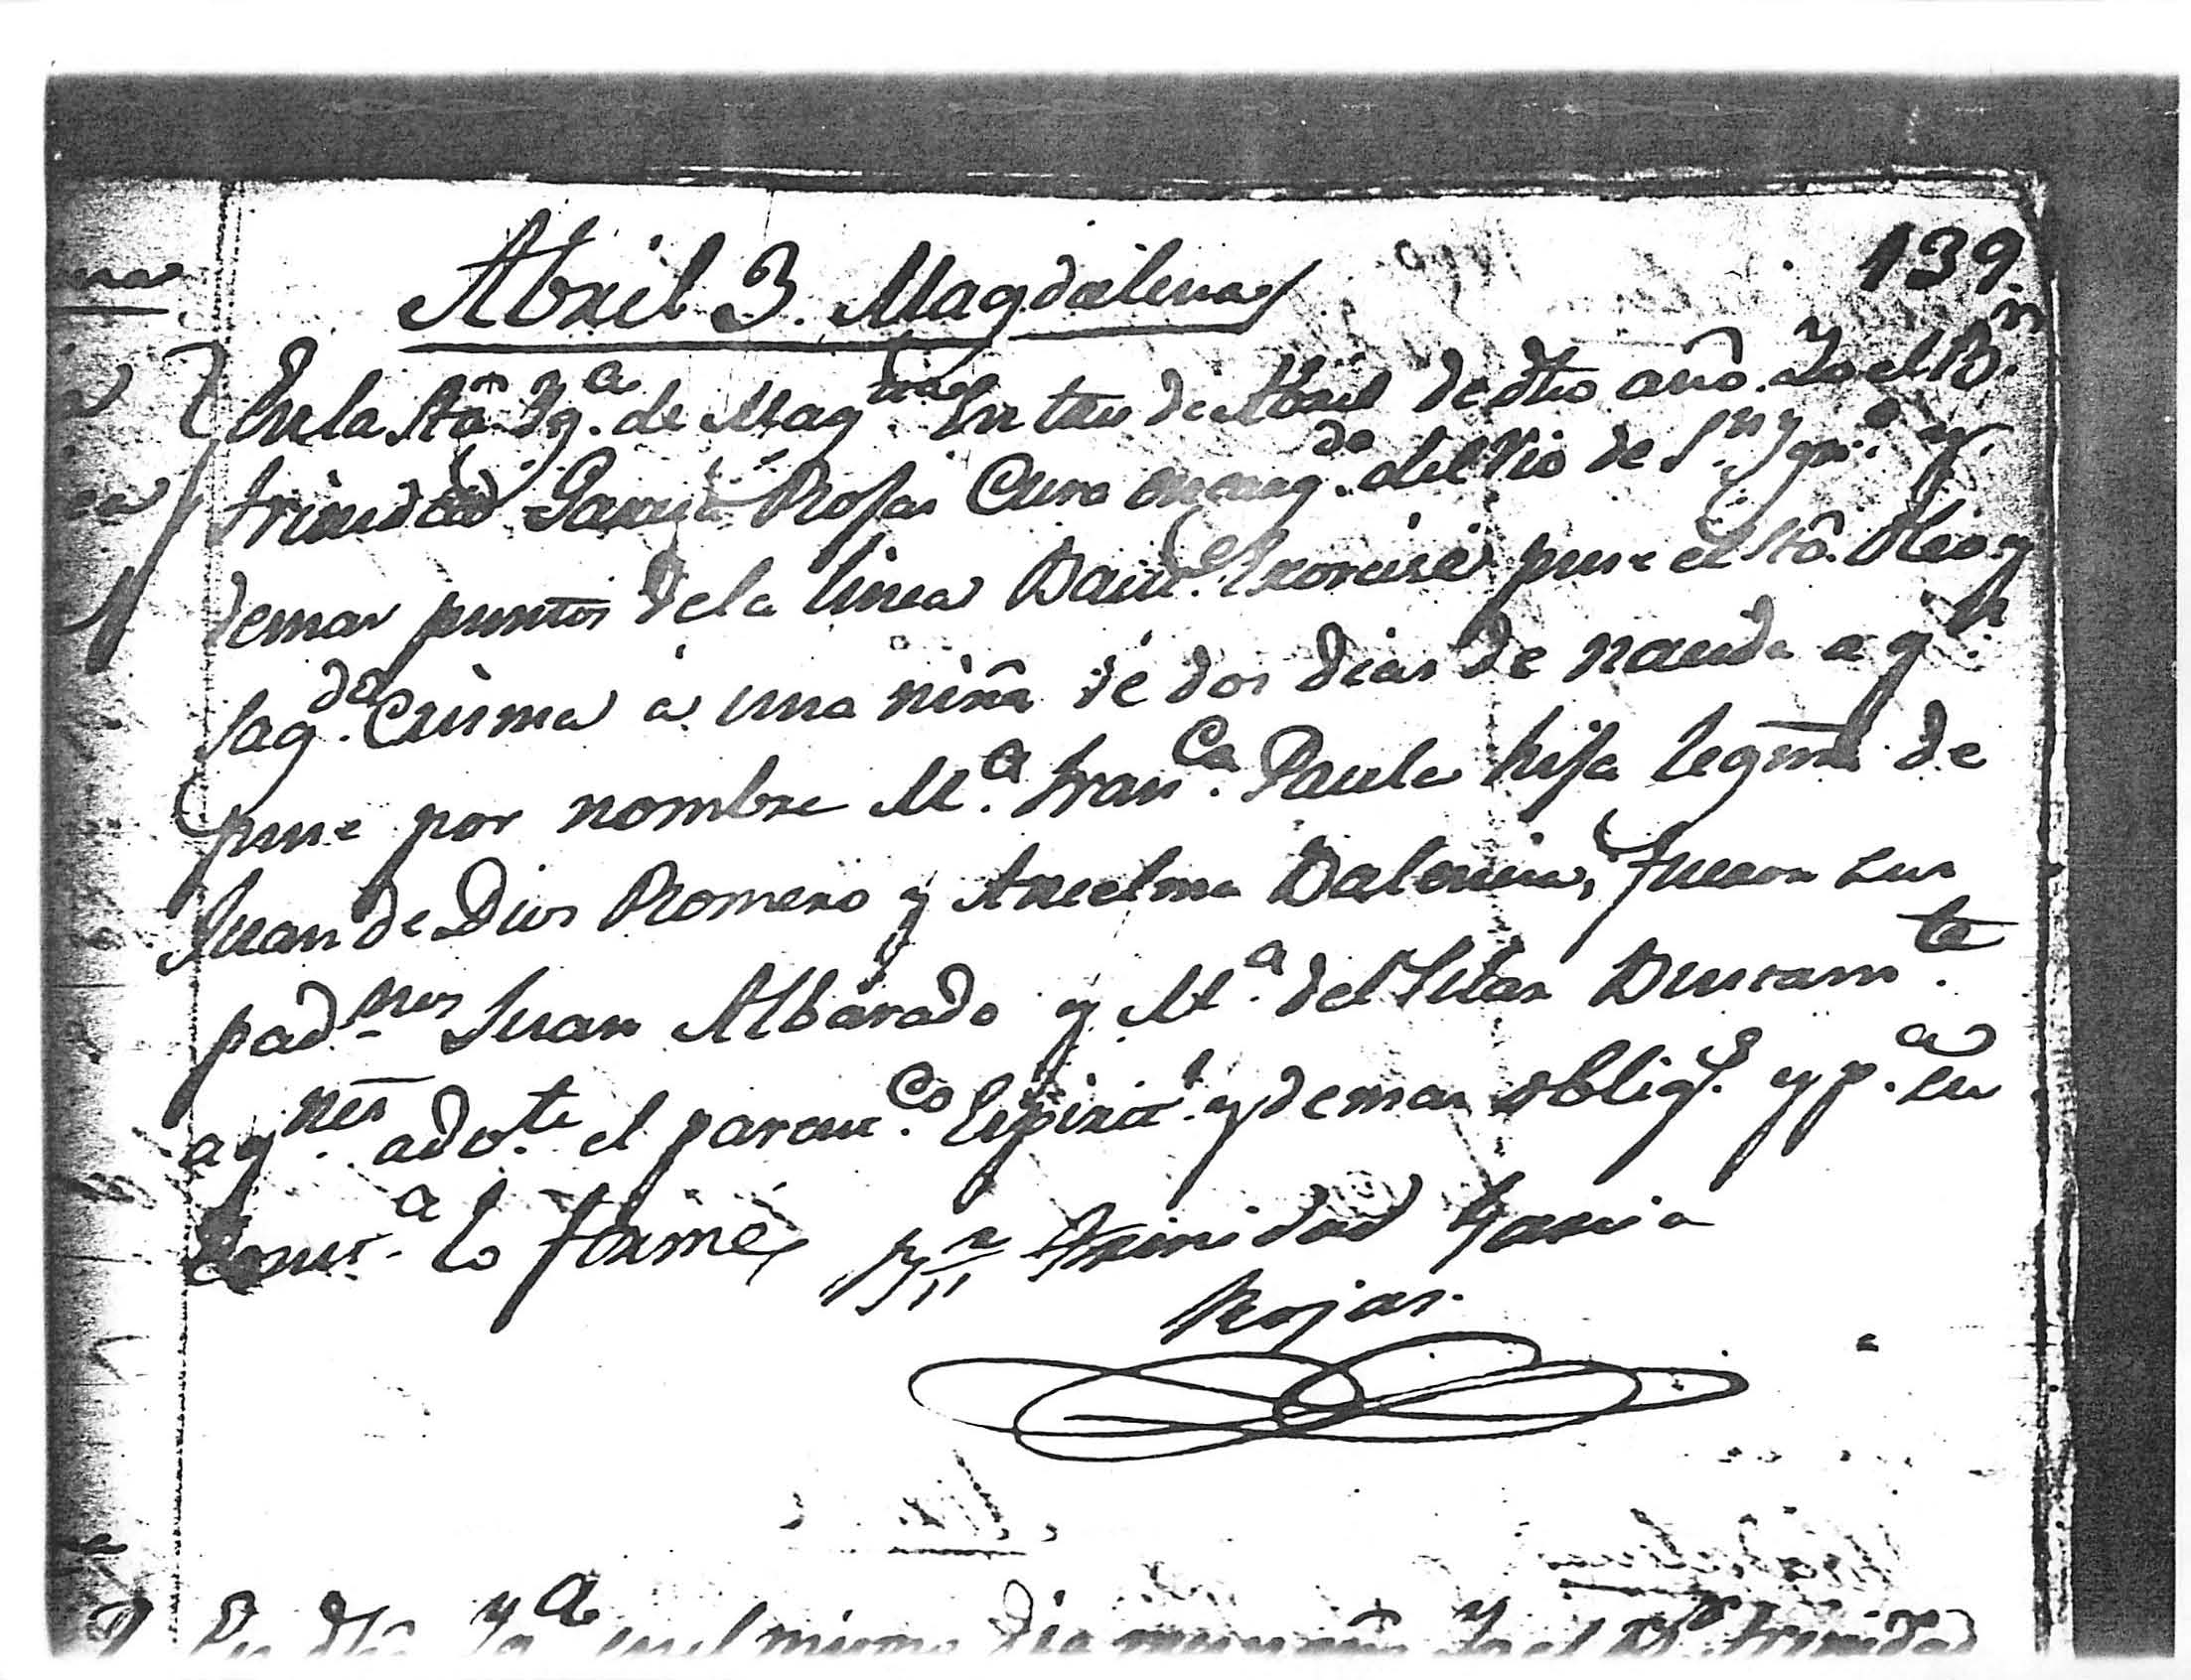 139
Abril 3. Magdalena
En la Sta Yg.a de Mag.na En tres de Abril de dho año. Yo el B.r
trinidad Garcia Rojas Cura encarg.do del Rio de S.n Ygn.o y
demas puntos de la linea Baut.e Exorcisé puse el Sto. Oleo y
Sag.do Crisma a una niña de dos dias de nacida a q.n
puse por nombre M.a Fran.ca Paula hija legma de
Juan de Dios Romero y Ancelma Balencia, fueron sus
pad.nos Juan Albarado y M.a del Pilar
a q.nes adv.te el parent.co Espirat.l y demas oblig.s y p.a su
const.a lo firmé B.r Trinidad Garcia
Rojas.
en el mismo dia mes y año Yo el B.r trinidad